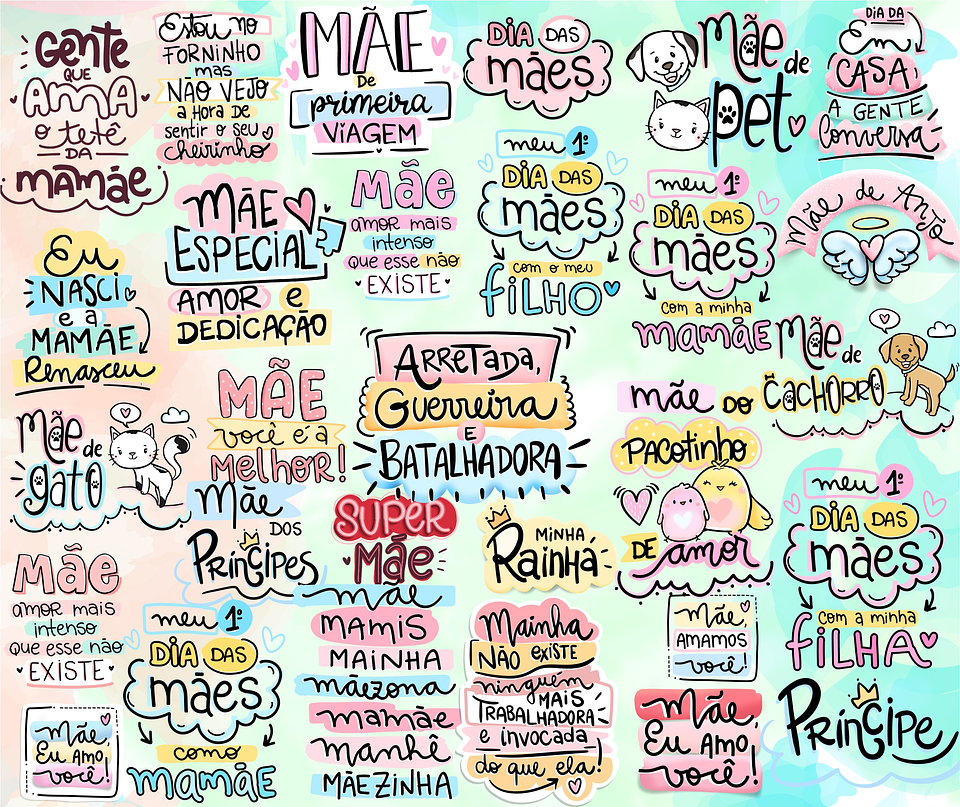 Gente
QUE
AMA
o tetê
DA
mamãe
Estou no
FORNINHO
mas
NÃO VEJO
a HORA DE
sentir o seu
cheirinho
MÃE
DE
primeira
VIAGEM
DIA DAS
mães
Mãe de
pet
DIA DA
Em
CASA,
A GENTE
Conversa
MÃE
ESPECIAL
AMOR e
DEDICAÇÃO
Mãe
amor mais
intenso
que esse não
EXISTE
meu 1º
DIA DAS
mães
com o meu
FILHO
meu 1º
DIA DAS
mães
com a minha
mamãe
Mãe de Anjo
Eu
NASCI
e a
MAMÃE
Renasceu
MÃE
você é a
melhor!
ARRETADA,
Guerreira
E
BATALHADORA
mãe DO
PACOTINHO
DE amor
Mãe de
CACHORRO
Mãe de
gato
Mãe
DOS
Príncipes
SUPER
Mãe
MINHA
Rainha
meu 1º
DIA DAS
mães
com a minha
FILHA
Mãe
amor mais
intenso
que esse não
EXISTE
meu 1º
DIA DAS
mães
como
mamãe
mãe
MAMIS
MAINHA
mãezona
mamãe
manhê
MÃEZINHA
Mainha
NÃO EXISTE
ninguém
MAIS
TRABALHADORA
e invocada
do que ela!
Mãe,
AMAMOS
você!
Mãe,
Eu Amo
você!
Mãe,
Eu Amo
você!
Príncipe